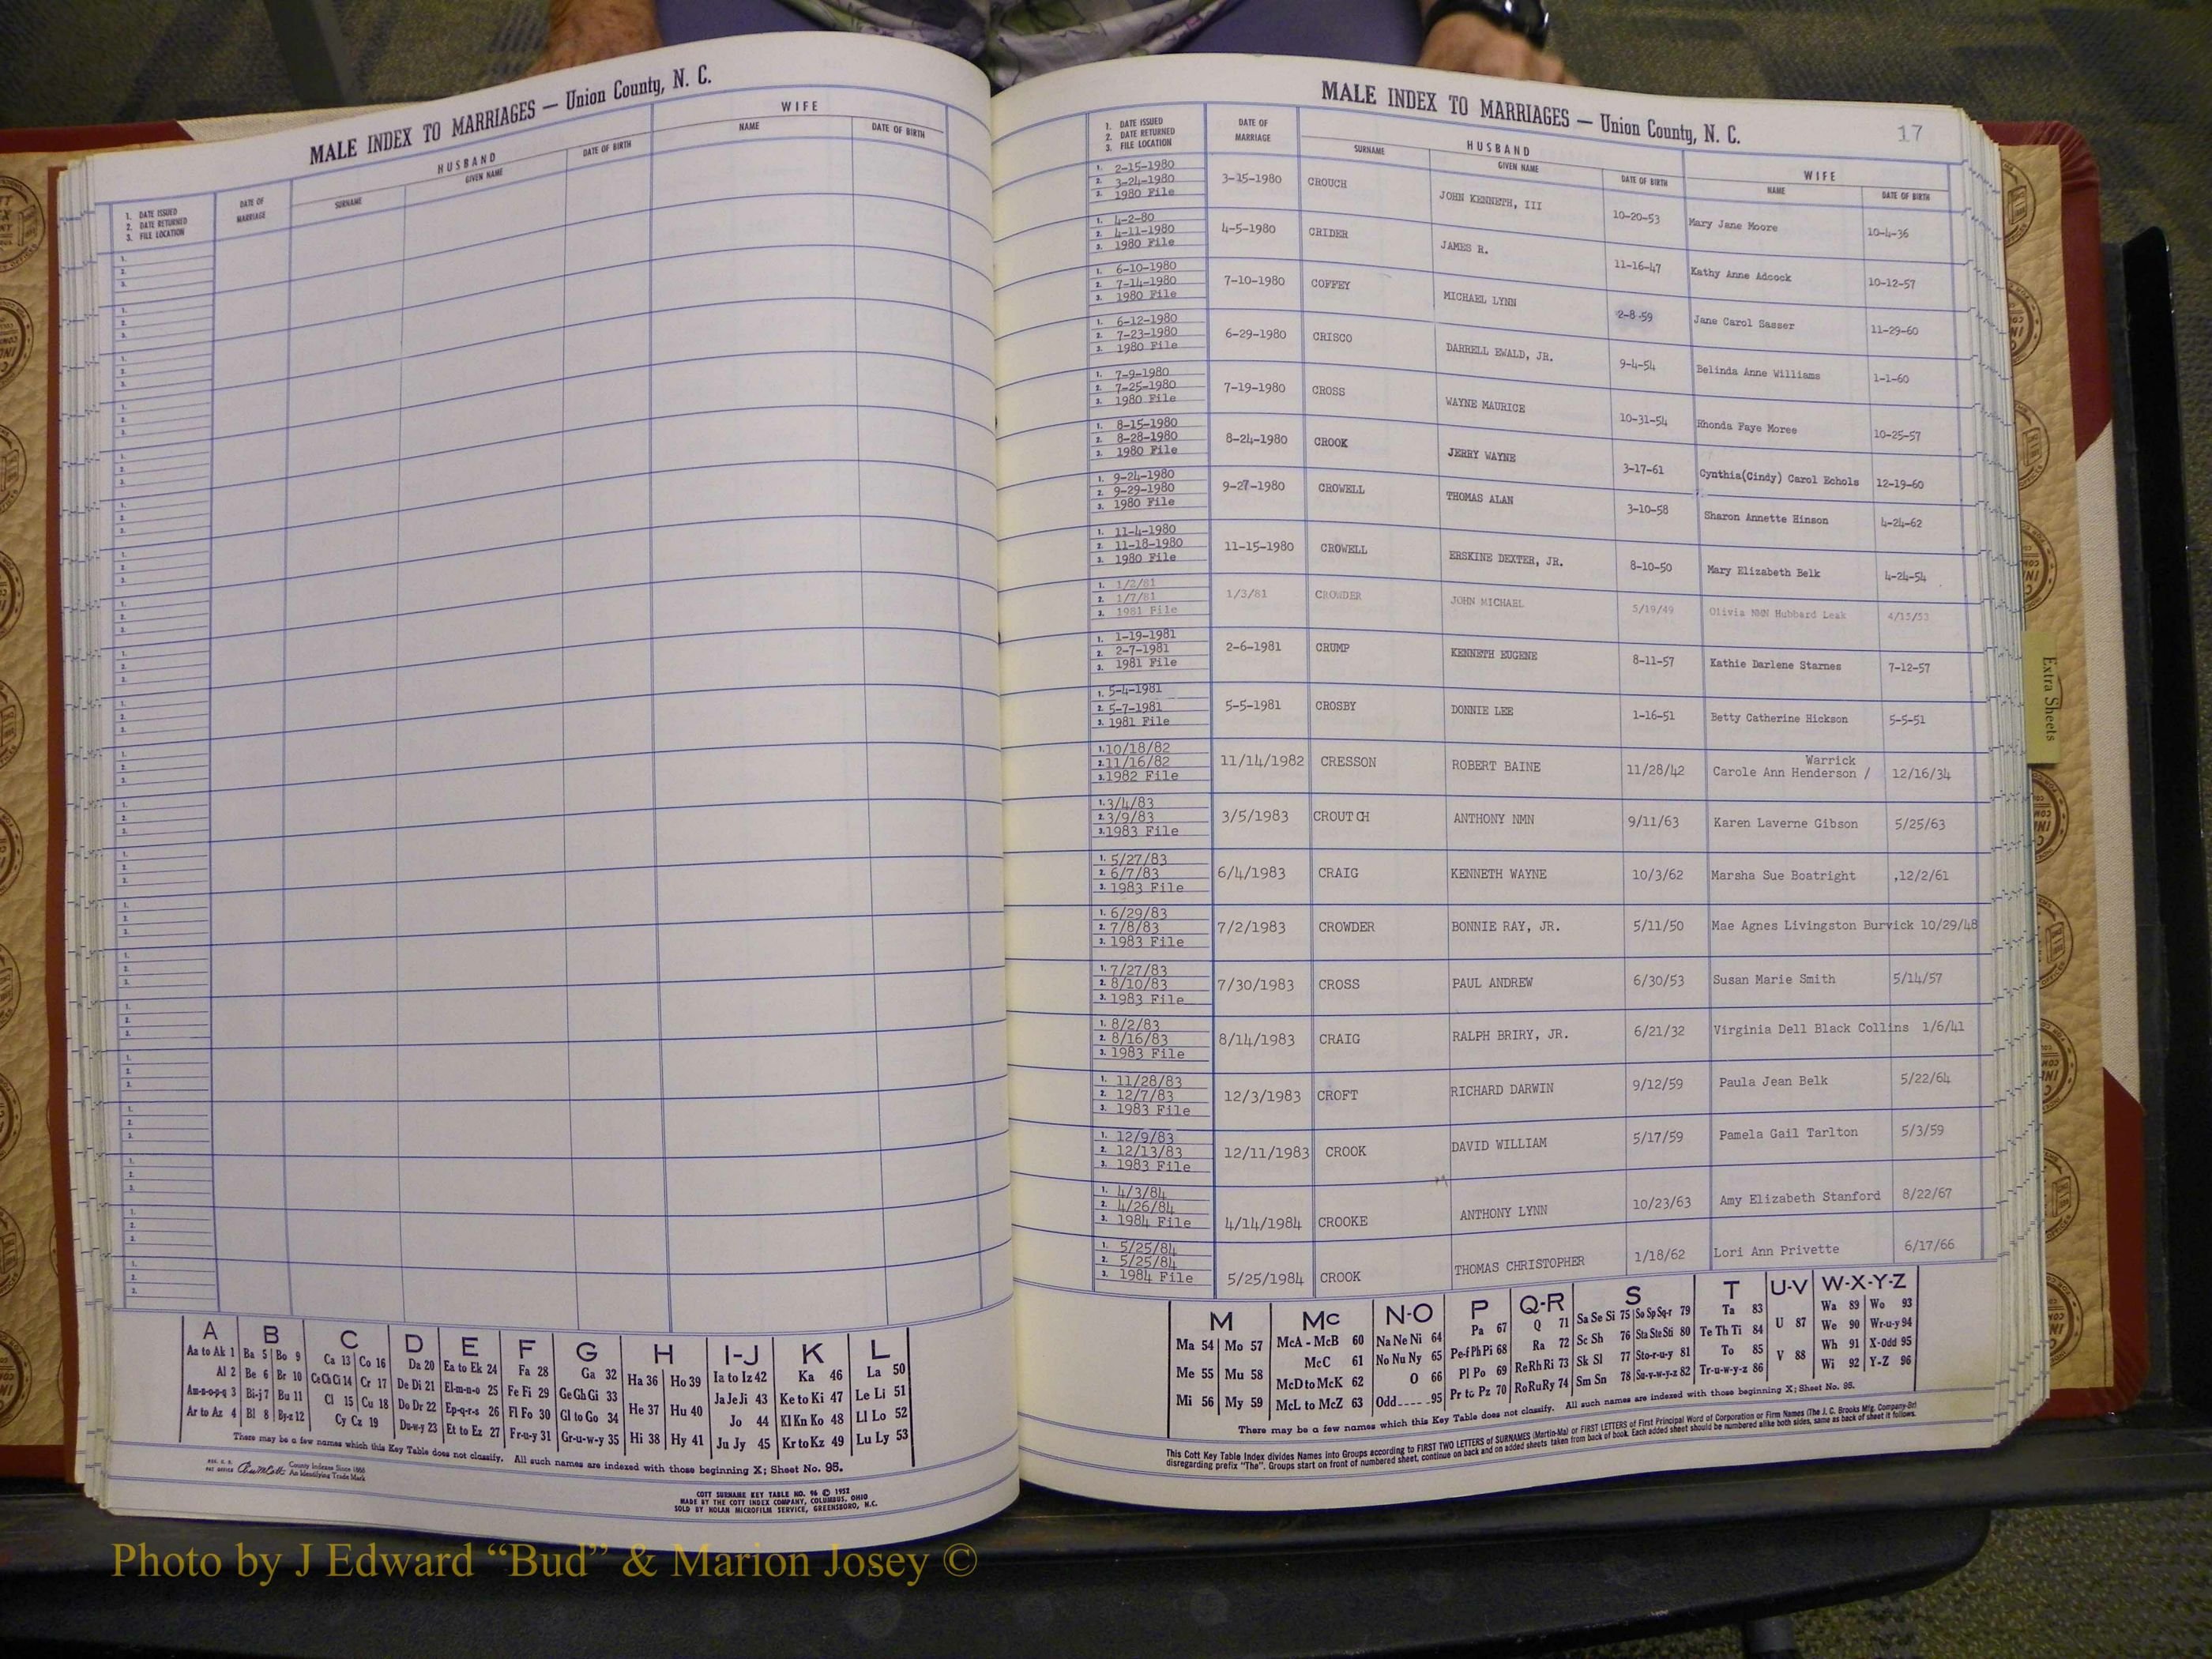 MALE INDEX TO MARRIAGES — Union County, N. C.
HUSBAND
WIFE
1. DATE ISSUED
2. DATE RETURNED
3. FILE LOCATION
DATE OF MARRIAGE
SURNAME
GIVEN NAME
DATE OF BIRTH
NAME
DATE OF BIRTH
A B C D E F G H I-J K L
Aa to Ak 1 Ba 5 Bo 9 Ca 13 Co 16 Da 20 Ea to Ek 24 Fa 28 Ga 32 Ha 36 Ho 39 Ia to Iz 42 Ka 46 La 50
Al 2 Be 6 Br 10 Ce Ch Ci 14 Cr 17 De Di 21 El-m-n-o 25 Fe Fi 29 Ge Gh Gi 33 He 37 Hu 40 Ja Je Ji 43 Ke to Ki 47 Le Li 51
Am-n-o-p-q 3 Bi-j 7 Bu 11 Cl 15 Cu 18 Do Dr 22 Ep-q-r-s 26 Fl Fo 30 Gl to Go 34 Hi 38 Hy 41 Jo 44 Kl Kn Ko 48 Ll Lo 52
Ar to Az 4 Bl 8 By-z 12 Cy Cz 19 Du-w-y 23 Et to Ez 27 Fr-u-y 31 Gr-u-w-y 35 Ju Jy 45 Kr to Kz 49 Lu Ly 53
There may be a few names which this Key Table does not classify. All such names are indexed with those beginning X; Sheet No. 95.
County Indexes Since 1888
An Identifying Trade Mark
COTT SURNAME KEY TABLE NO. 96 © 1952
MADE BY THE COTT INDEX COMPANY, COLUMBUS, OHIO
SOLD BY NOLAN MICROFILM SERVICE, GREENSBORO, N.C.
MALE INDEX TO MARRIAGES — Union County, N. C.
17
1. DATE ISSUED
2. DATE RETURNED
3. FILE LOCATION
DATE OF MARRIAGE
HUSBAND
SURNAME
GIVEN NAME
DATE OF BIRTH
WIFE
NAME
DATE OF BIRTH
1. 2-15-1980
2. 3-24-1980
3. 1980 File
3-15-1980 CROUCH JOHN KENNETH, III 10-20-53 Mary Jane Moore 10-4-36
1. 4-2-80
2. 4-11-1980
3. 1980 File
4-5-1980 CRIDER JAMES R. 11-16-47 Kathy Anne Adcock 10-12-57
1. 6-10-1980
2. 7-14-1980
3. 1980 File
7-10-1980 COFFEY MICHAEL LYNN 2-8-59 Jane Carol Sasser 11-29-60
1. 6-12-1980
2. 7-23-1980
3. 1980 File
6-29-1980 CRISCO DARRELL EWALD, JR. 9-4-54 Belinda Anne Williams 1-1-60
1. 7-9-1980
2. 7-25-1980
3. 1980 File
7-19-1980 CROSS WAYNE MAURICE 10-31-54 Rhonda Faye Moree 10-25-57
1. 8-15-1980
2. 8-28-1980
3. 1980 File
8-24-1980 CROOK JERRY WAYNE 3-17-61 Cynthia(Cindy) Carol Echols 12-19-60
1. 9-24-1980
2. 9-29-1980
3. 1980 File
9-27-1980 CROWELL THOMAS ALAN 3-10-58 Sharon Annette Hinson 4-24-62
1. 11-4-1980
2. 11-18-1980
3. 1980 File
11-15-1980 CROWELL ERSKINE DEXTER, JR. 8-10-50 Mary Elizabeth Belk 4-24-54
1. 1/2/81
2. 1/7/81
3. 1981 File
1/3/81 CROWDER JOHN MICHAEL 5/19/49 Olivia NMN Hubbard Leak 4/15/53
1. 1-19-1981
2. 2-7-1981
3. 1981 File
2-6-1981 CRUMP KENNETH EUGENE 8-11-57 Kathie Darlene Starnes 7-12-57
1. 5-4-1981
2. 5-7-1981
3. 1981 File
5-5-1981 CROSBY DONNIE LEE 1-16-51 Betty Catherine Hickson 5-5-51
1. 10/18/82
2. 11/16/82
3. 1982 File
11/14/1982 CRESSON ROBERT BAINE 11/28/42 Carole Ann Henderson / Warrick 12/16/34
1. 3/4/83
2. 3/9/83
3. 1983 File
3/5/1983 CROUTCH ANTHONY NMN 9/11/63 Karen Laverne Gibson 5/25/63
1. 5/27/83
2. 6/7/83
3. 1983 File
6/4/1983 CRAIG KENNETH WAYNE 10/3/62 Marsha Sue Boatright ,12/2/61
1. 6/29/83
2. 7/8/83
3. 1983 File
7/2/1983 CROWDER BONNIE RAY, JR. 5/11/50 Mae Agnes Livingston Burwick 10/29/48
1. 7/27/83
2. 8/10/83
3. 1983 File
7/30/1983 CROSS PAUL ANDREW 6/30/53 Susan Marie Smith 5/14/57
1. 8/2/83
2. 8/16/83
3. 1983 File
8/14/1983 CRAIG RALPH BRIRY, JR. 6/21/32 Virginia Dell Black Collins 1/6/41
1. 11/28/83
2. 12/7/83
3. 1983 File
12/3/1983 CROFT RICHARD DARWIN 9/12/59 Paula Jean Belk 5/22/64
1. 12/9/83
2. 12/13/83
3. 1983 File
12/11/1983 CROOK DAVID WILLIAM 5/17/59 Pamela Gail Tarlton 5/3/59
1. 4/3/84
2. 4/26/84
3. 1984 File
4/14/1984 CROOKE ANTHONY LYNN 10/23/63 Amy Elizabeth Stanford 8/22/67
1. 5/25/84
2. 5/25/84
3. 1984 File
5/25/1984 CROOK THOMAS CHRISTOPHER 1/18/62 Lori Ann Privette 6/17/66
M Mc N-O P Q-R S T U-V W-X-Y-Z
Ma 54 Mo 57 McA - McB 60 Na Ne Ni 64 Pa 67 Q 71 Sa Se Si 75 So Sp Sq-r 79 Ta 83 U 87 Wa 89 Wo 93
Me 55 Mu 58 McC 61 No Nu Ny 65 Pe-f Ph Pi 68 Ra 72 Sc Sh 76 Sta Ste Sti 80 Te Th Ti 84 V 88 We 90 Wr-u-y 94
Mi 56 My 59 McD to McK 62 O 66 Pl Po 69 Re Rh Ri 73 Sk Sl 77 Sto-r-u-y 81 To 85 Wh 91 X-Odd 95
McL to McZ 63 Odd 95 Pr to Pz 70 Ro Ru Ry 74 Sm Sn 78 Su-v-w-y-z 82 Tr-u-w-y-z 86 Wi 92 Y-Z 96
There may be a few names which this Key Table does not classify. All such names are indexed with those beginning X; Sheet No. 95.
This Cott Key Table Index divides Names into Groups according to FIRST TWO LETTERS of SURNAMES (Martin-Ma) or FIRST LETTERS of First Principal Word of Corporation or Firm Names (The J. C. Brooks Mfg. Company-Br)
disregarding prefix "The". Groups start on front of numbered sheet, continue on back and on added sheets taken from back of book. Each added sheet should be numbered alike both sides, same as back of sheet it follows.
Extra Sheets
Photo by J Edward “Bud” & Marion Josey ©